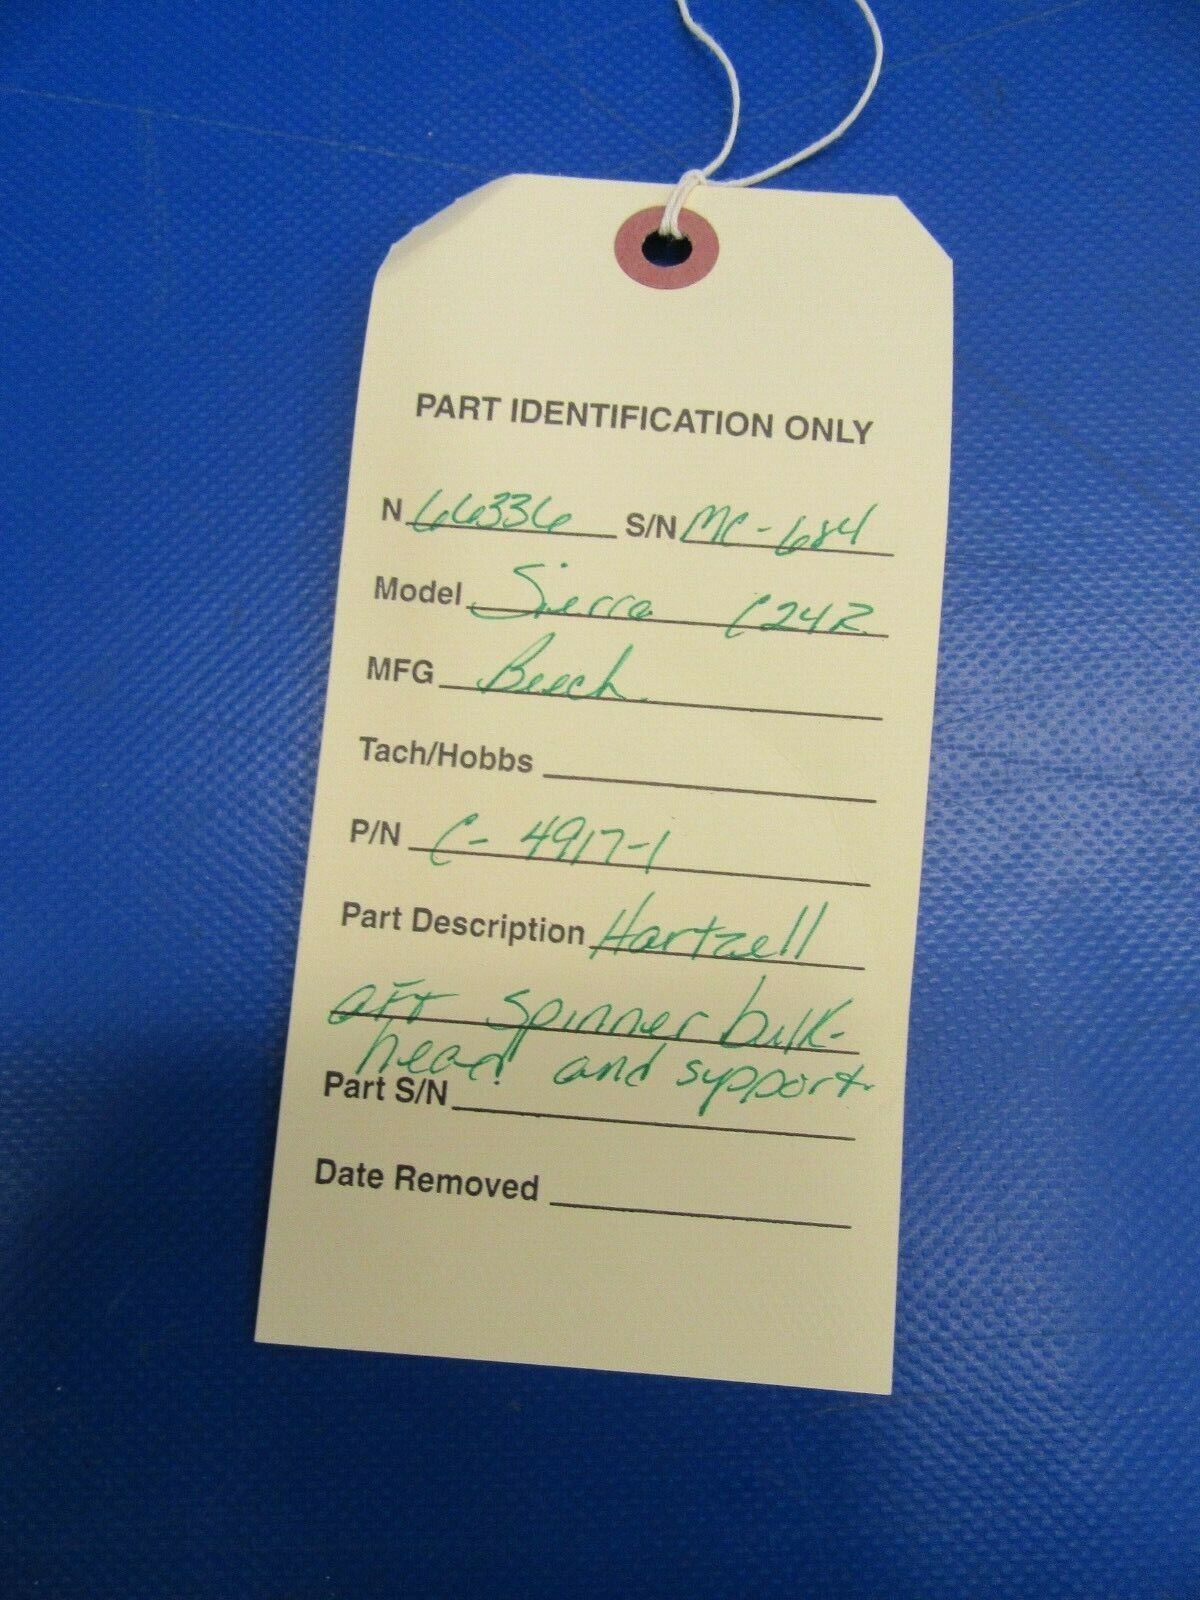 PART IDENTIFICATION ONLY
N 66336 S/N MC-684
Model Sierra C24R
MFG Beech
Tach/Hobbs
P/N C-4917-1
Part Description Hartzell
aft spinner bulk-
head and support
Part S/N
Date Removed